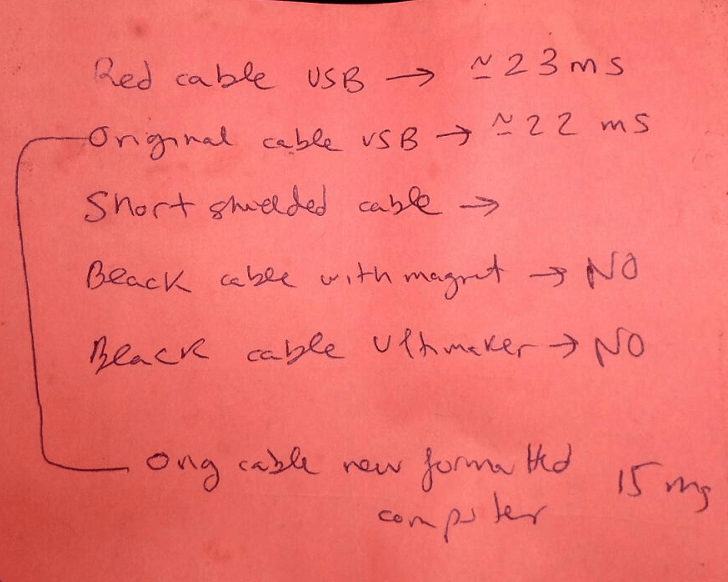 Red cable USB → ≃ 23 ms
Original cable USB → ≃ 22 ms
Short shielded cable →
Black cable with magnet → NO
Black cable Ultimaker → NO
Orig cable new formatted 15 ms
computer